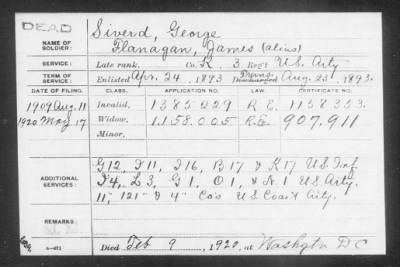 DEAD
Siverd, George
NAME OF SOLDIER: Flanagan, James (alias)
SERVICE: Late rank, Co. K, 3 Reg't U.S. Arty
TERM OF SERVICE: Enlisted Apr. 24, 1893 Discharged Aug. 23, 1893.
DATE OF FILING. CLASS. APPLICATION NO. LAW. CERTIFICATE NO.
1909 Aug. 11 Invalid, 1385029 R.E. 1158353.
1920 May 17 Widow, 1.158.005 R.E. 907.911
Minor,
G12, I11, I16, B17 & K17 U.S. Inf
ADDITIONAL SERVICES: I4, L3, G1, O1, & N.1 U.S. Arty.
11", 121" & 4" Co's U.S. Coast Arty.
REMARKS:
6-471
Died Feb 9, 1920, at Washgtn D C